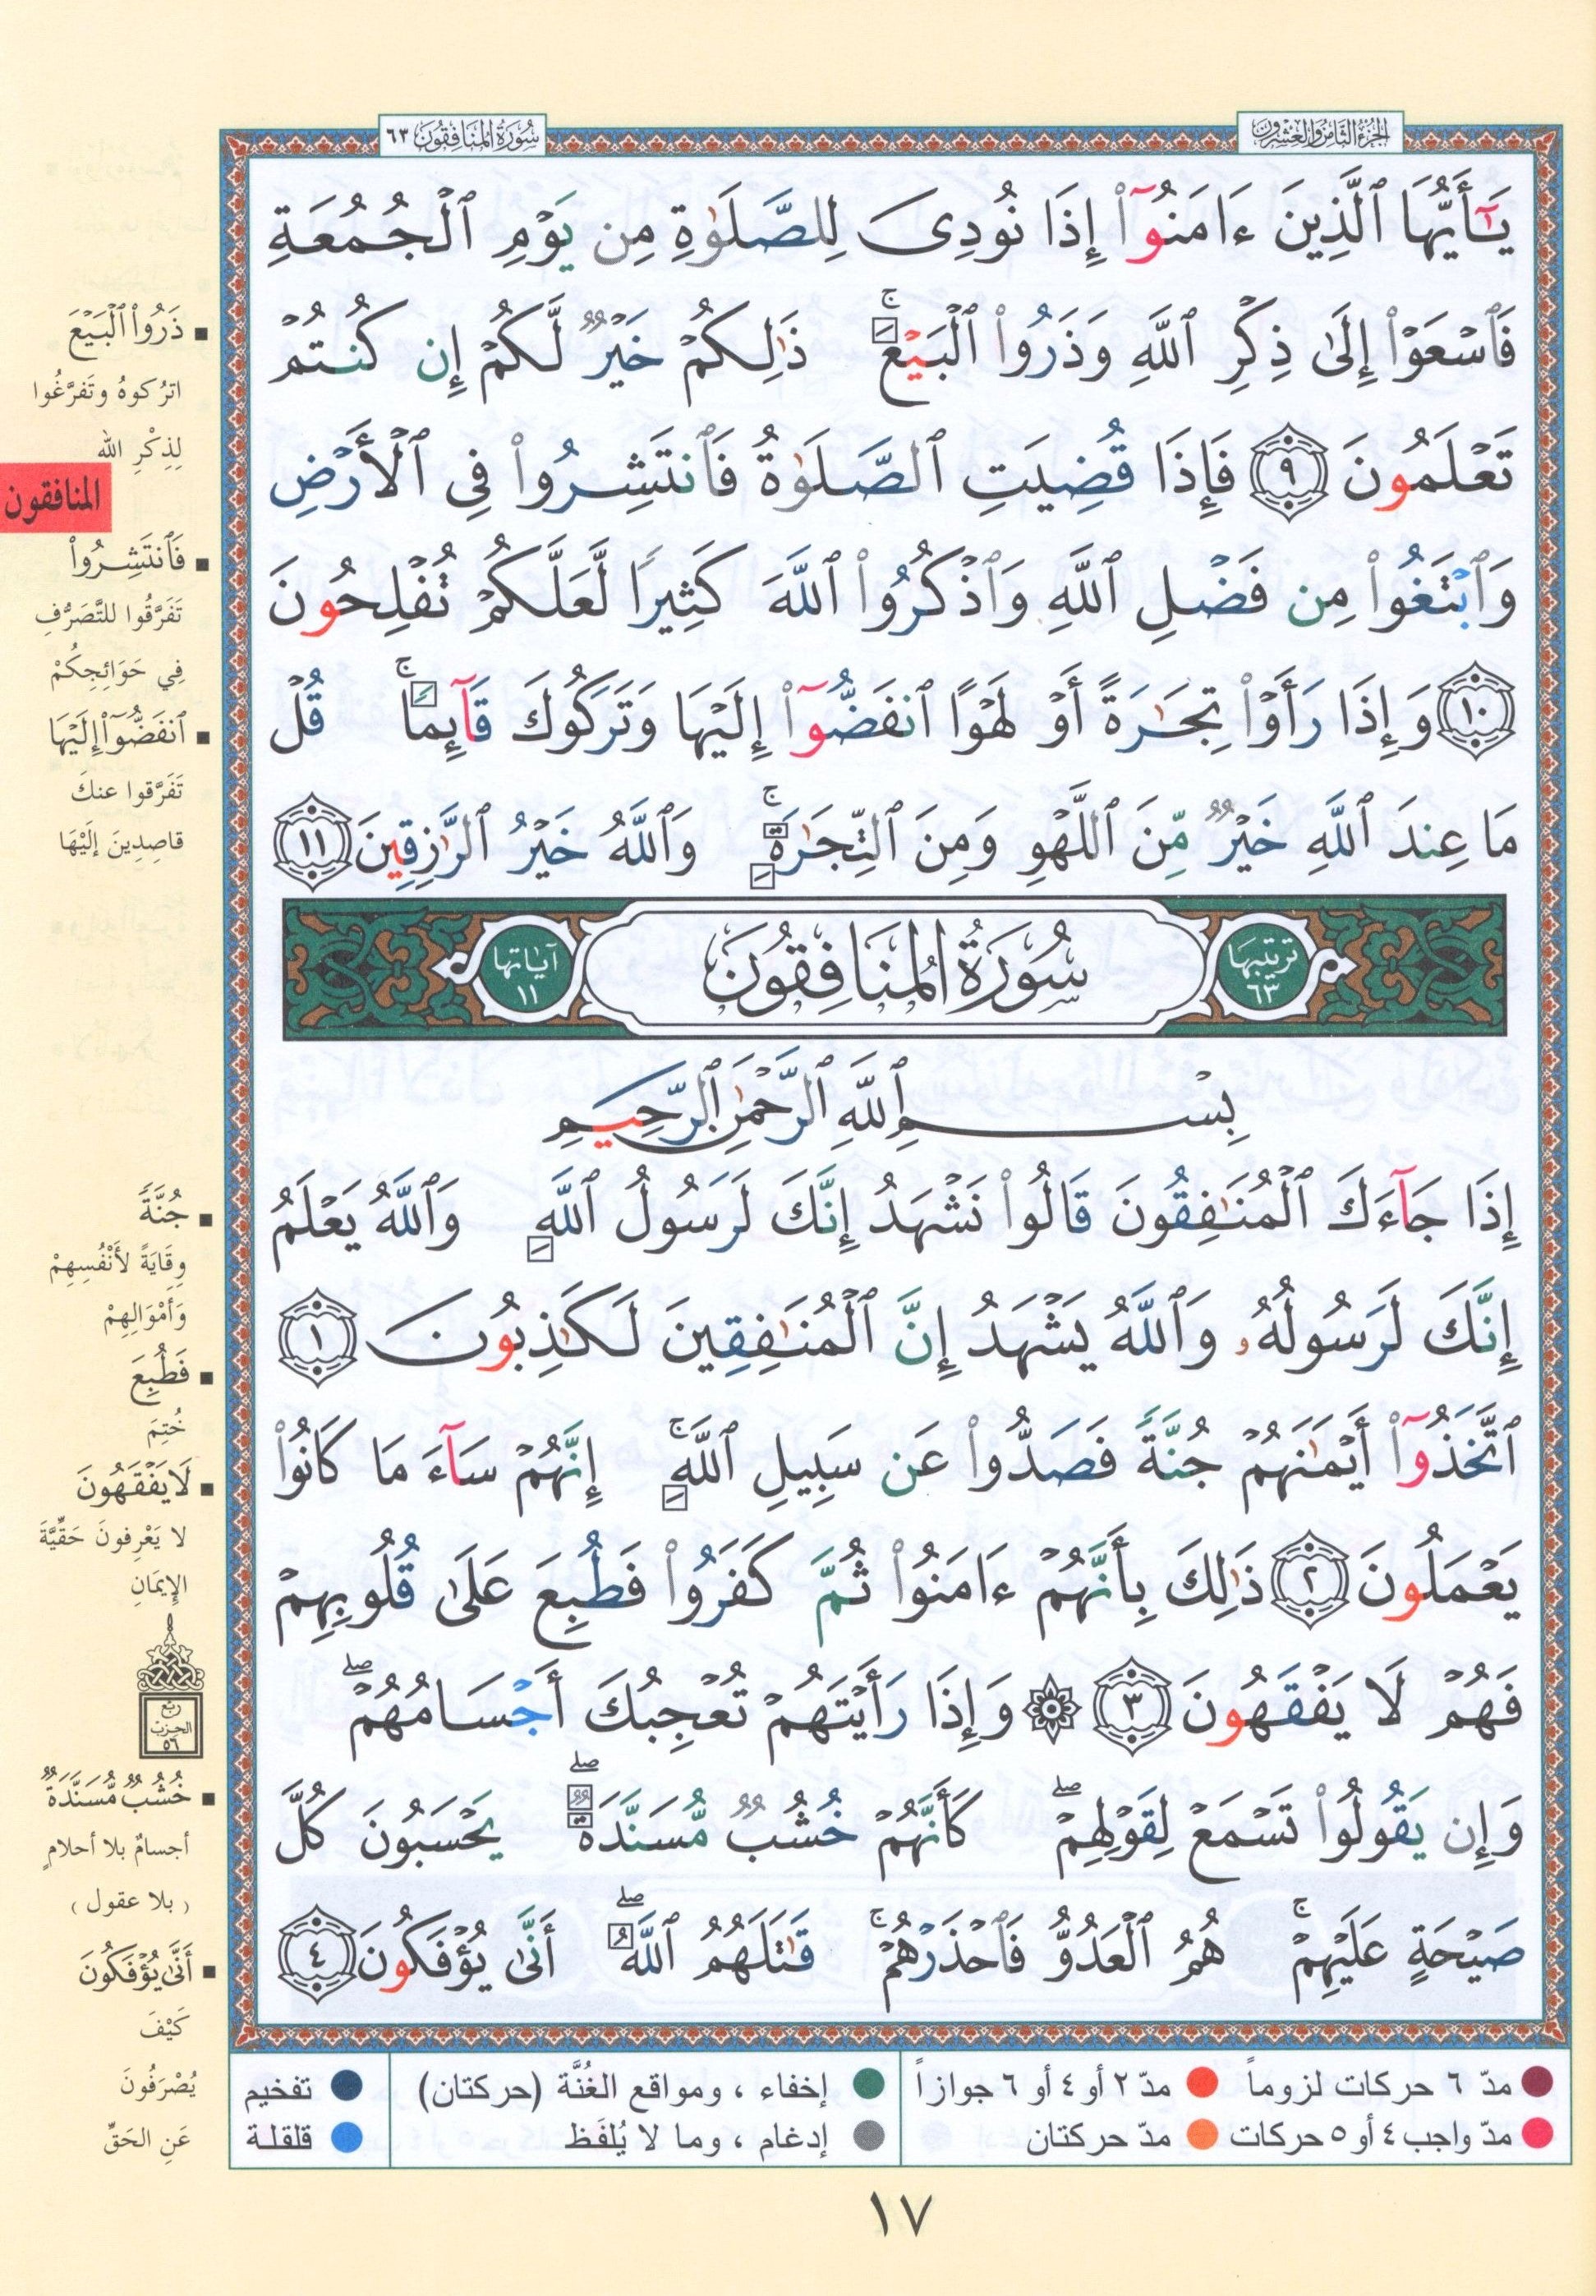 الجزء الثامن والعشرون
سُورَةُ المُنَافِقُونَ ٦٣
يَـٰٓأَيُّهَا ٱلَّذِينَ ءَامَنُوٓا۟ إِذَا نُودِىَ لِلصَّلَوٰةِ مِن يَوْمِ ٱلْجُمُعَةِ
فَٱسْعَوْا۟ إِلَىٰ ذِكْرِ ٱللَّهِ وَذَرُوا۟ ٱلْبَيْعَ ۚ ذَٰلِكُمْ خَيْرٌ لَّكُمْ إِن كُنتُمْ
تَعْلَمُونَ ٩ فَإِذَا قُضِيَتِ ٱلصَّلَوٰةُ فَٱنتَشِرُوا۟ فِى ٱلْأَرْضِ
وَٱبْتَغُوا۟ مِن فَضْلِ ٱللَّهِ وَٱذْكُرُوا۟ ٱللَّهَ كَثِيرًا لَّعَلَّكُمْ تُفْلِحُونَ
١٠ وَإِذَا رَأَوْا۟ تِجَـٰرَةً أَوْ لَهْوًا ٱنفَضُّوٓا۟ إِلَيْهَا وَتَرَكُوكَ قَآئِمًا ۚ قُلْ
مَا عِندَ ٱللَّهِ خَيْرٌ مِّنَ ٱللَّهْوِ وَمِنَ ٱلتِّجَـٰرَةِ ۚ وَٱللَّهُ خَيْرُ ٱلرَّٰزِقِينَ ١١
ترتيبها ٦٣ سُورَةُ المُنَافِقُونَ آياتها ١١
بِسْمِ ٱللَّهِ ٱلرَّحْمَـٰنِ ٱلرَّحِيمِ
إِذَا جَآءَكَ ٱلْمُنَـٰفِقُونَ قَالُوا۟ نَشْهَدُ إِنَّكَ لَرَسُولُ ٱللَّهِ وَٱللَّهُ يَعْلَمُ
إِنَّكَ لَرَسُولُهُۥ وَٱللَّهُ يَشْهَدُ إِنَّ ٱلْمُنَـٰفِقِينَ لَكَـٰذِبُونَ ١
ٱتَّخَذُوٓا۟ أَيْمَـٰنَهُمْ جُنَّةً فَصَدُّوا۟ عَن سَبِيلِ ٱللَّهِ ۚ إِنَّهُمْ سَآءَ مَا كَانُوا۟
يَعْمَلُونَ ٢ ذَٰلِكَ بِأَنَّهُمْ ءَامَنُوا۟ ثُمَّ كَفَرُوا۟ فَطُبِعَ عَلَىٰ قُلُوبِهِمْ
فَهُمْ لَا يَفْقَهُونَ ٣ ۞ وَإِذَا رَأَيْتَهُمْ تُعْجِبُكَ أَجْسَامُهُمْ ۖ
وَإِن يَقُولُوا۟ تَسْمَعْ لِقَوْلِهِمْ ۖ كَأَنَّهُمْ خُشُبٌ مُّسَنَّدَةٌ ۖ يَحْسَبُونَ كُلَّ
صَيْحَةٍ عَلَيْهِمْ ۚ هُمُ ٱلْعَدُوُّ فَٱحْذَرْهُمْ ۚ قَـٰتَلَهُمُ ٱللَّهُ ۖ أَنَّىٰ يُؤْفَكُونَ ٤
ذَرُوا۟ ٱلْبَيْعَ
اترُكوهُ وتَفرَّغُوا
لِذِكْرِ الله
المنافقون
فَٱنتَشِرُوا۟
تَفَرَّقُوا للتَّصَرُّفِ
فِي حَوَائِجِكُمْ
ٱنفَضُّوٓا۟ إِلَيْهَا
تَفَرَّقوا عنكَ
قاصِدِينَ إلَيْهَا
جُنَّةً
وِقَايَةً لأَنْفُسِهِمْ
وَأمْوَالِهِمْ
فَطُبِعَ
خُتِمَ
لَا يَفْقَهُونَ
لا يَعْرِفونَ حَقِّيَّةَ
الإيمَانِ
ربع
الحزب
٥٦
خُشُبٌ مُّسَنَّدَةٌ
أجسامٌ بلا أحلامٍ
( بلا عقول )
أَنَّىٰ يُؤْفَكُونَ
كَيْفَ
يُصْرَفُونَ
عَنِ الحَقِّ
مدّ ٦ حركات لزوماً مدّ ٢ أو ٤ أو ٦ جوازاً إخفاء ، ومواقع الغُنَّة (حركتان) تفخيم
مدّ واجب ٤ أو ٥ حركات مدّ حركتان إدغام ، وما لا يُلفَظ قلقلة
١٧